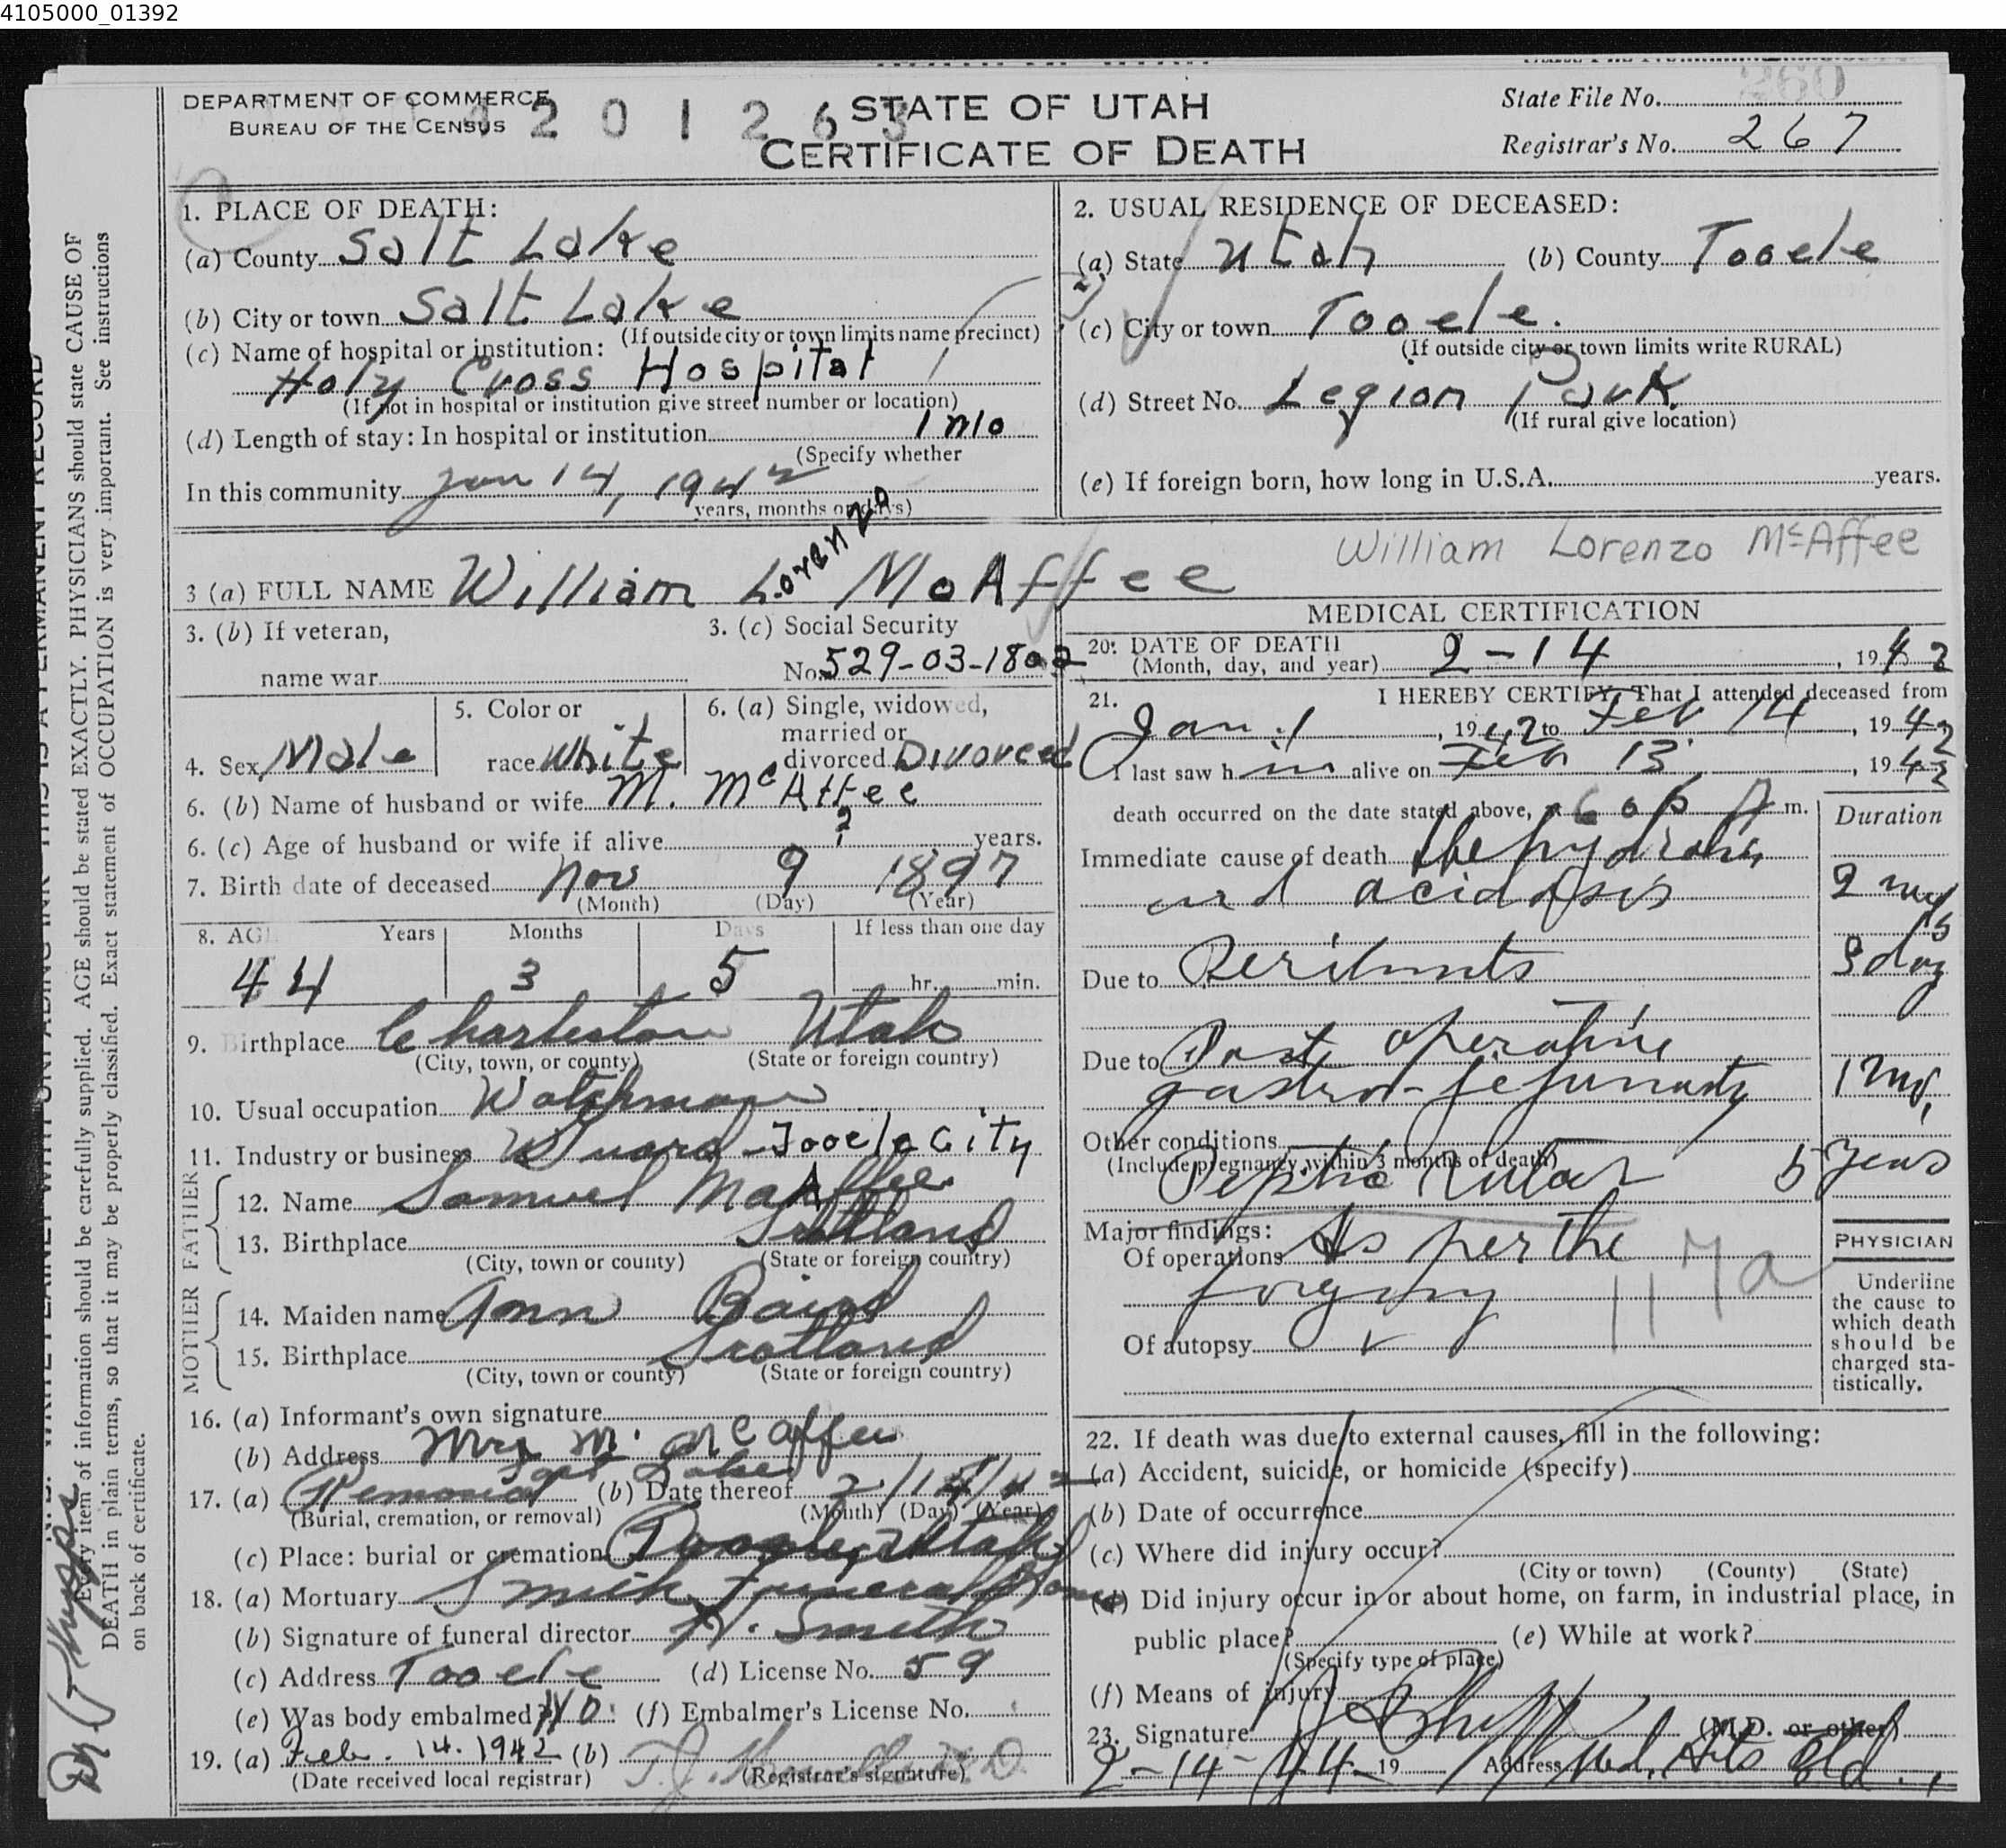 4105000_01392
DEPARTMENT OF COMMERCE
BUREAU OF THE CENSUS
4 2 0 1 2 6 3
STATE OF UTAH
CERTIFICATE OF DEATH
State File No. 260
Registrar's No. 267
1. PLACE OF DEATH:
(a) County Salt Lake
(b) City or town Salt Lake
(If outside city or town limits name precinct)
(c) Name of hospital or institution:
Holy Cross Hospital
(If not in hospital or institution give street number or location)
(d) Length of stay: In hospital or institution 1 mo
(Specify whether
In this community Jan 14, 1942
years, months or days)
2. USUAL RESIDENCE OF DECEASED:
(a) State Utah (b) County Tooele
(c) City or town Tooele.
(If outside city or town limits write RURAL)
(d) Street No. Legion Park
(If rural give location)
(e) If foreign born, how long in U.S.A. years.
3 (a) FULL NAME William Lorenzo McAffee
William Lorenzo McAffee
3. (b) If veteran,
name war
3. (c) Social Security
No. 529-03-1802
4. Sex Male
5. Color or
race White
6. (a) Single, widowed,
married or
divorced Divorced
6. (b) Name of husband or wife M. McAffee
6. (c) Age of husband or wife if alive ? years.
7. Birth date of deceased Nov 9 1897
(Month) (Day) (Year)
8. AGE Years Months Days If less than one day
44 3 5 hr. min.
9. Birthplace Charleston Utah
(City, town, or county) (State or foreign country)
10. Usual occupation Watchman
11. Industry or business Guard - Tooele City
FATHER
12. Name Samuel McAffee
13. Birthplace Scotland
(City, town or county) (State or foreign country)
MOTHER
14. Maiden name Ann Baird
15. Birthplace Scotland
(City, town or county) (State or foreign country)
16. (a) Informant's own signature
Mrs M. McAffee
(b) Address Salt Lake
17. (a) Removal (b) Date thereof 2/14/42
(Burial, cremation, or removal) (Month) (Day) (Year)
(c) Place: burial or cremation Tooele, Utah
18. (a) Mortuary Smith Funeral Home
(b) Signature of funeral director Smith
(c) Address Tooele (d) License No. 59
(e) Was body embalmed? No. (f) Embalmer's License No.
19. (a) Feb. 14. 1942 (b)
(Date received local registrar) (Registrar's signature)
MEDICAL CERTIFICATION
20. DATE OF DEATH
(Month, day, and year) 2-14, 1942
21. I HEREBY CERTIFY, That I attended deceased from
Jan. 1, 1942 to Feb 14, 1942
I last saw him alive on Feb 13, 1942
death occurred on the date stated above, m.
Duration
Immediate cause of death
and acidosis
Due to Peritonitis
Due to Post operative
gastro-jejunosty 1 mo,
Other conditions
(Include pregnancy within 3 months of death)
Peptic Ulcer 5 years
Major findings:
Of operations As per the
forgoing
117a
Of autopsy
PHYSICIAN
Underline
the cause to
which death
should be
charged sta-
tistically.
22. If death was due to external causes, fill in the following:
(a) Accident, suicide, or homicide (specify)
(b) Date of occurrence
(c) Where did injury occur?
(City or town) (County) (State)
(d) Did injury occur in or about home, on farm, in industrial place, in
public place? (e) While at work?
(Specify type of place)
(f) Means of injury
23. Signature (M.D. or other)
2-14- 19 Address Med. Arts Bld.
Every item of information should be carefully supplied. AGE should be stated EXACTLY. PHYSICIANS should state CAUSE OF
DEATH in plain terms, so that it may be properly classified. Exact statement of OCCUPATION is very important. See instructions
on back of certificate.